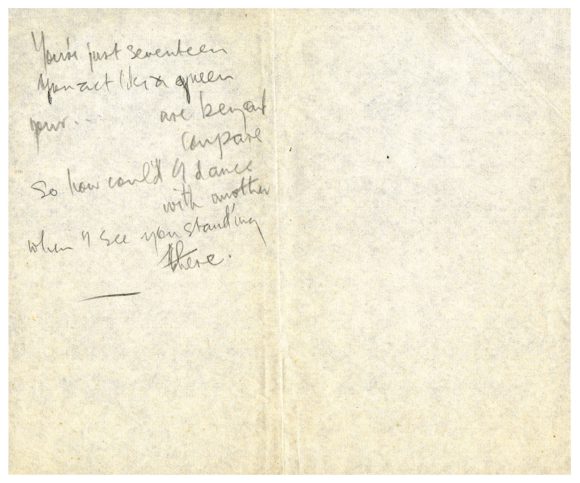 You're just seventeen
You act like a queen
your... are beyond
compare
So how could I dance
with another
when I see you standing
there.